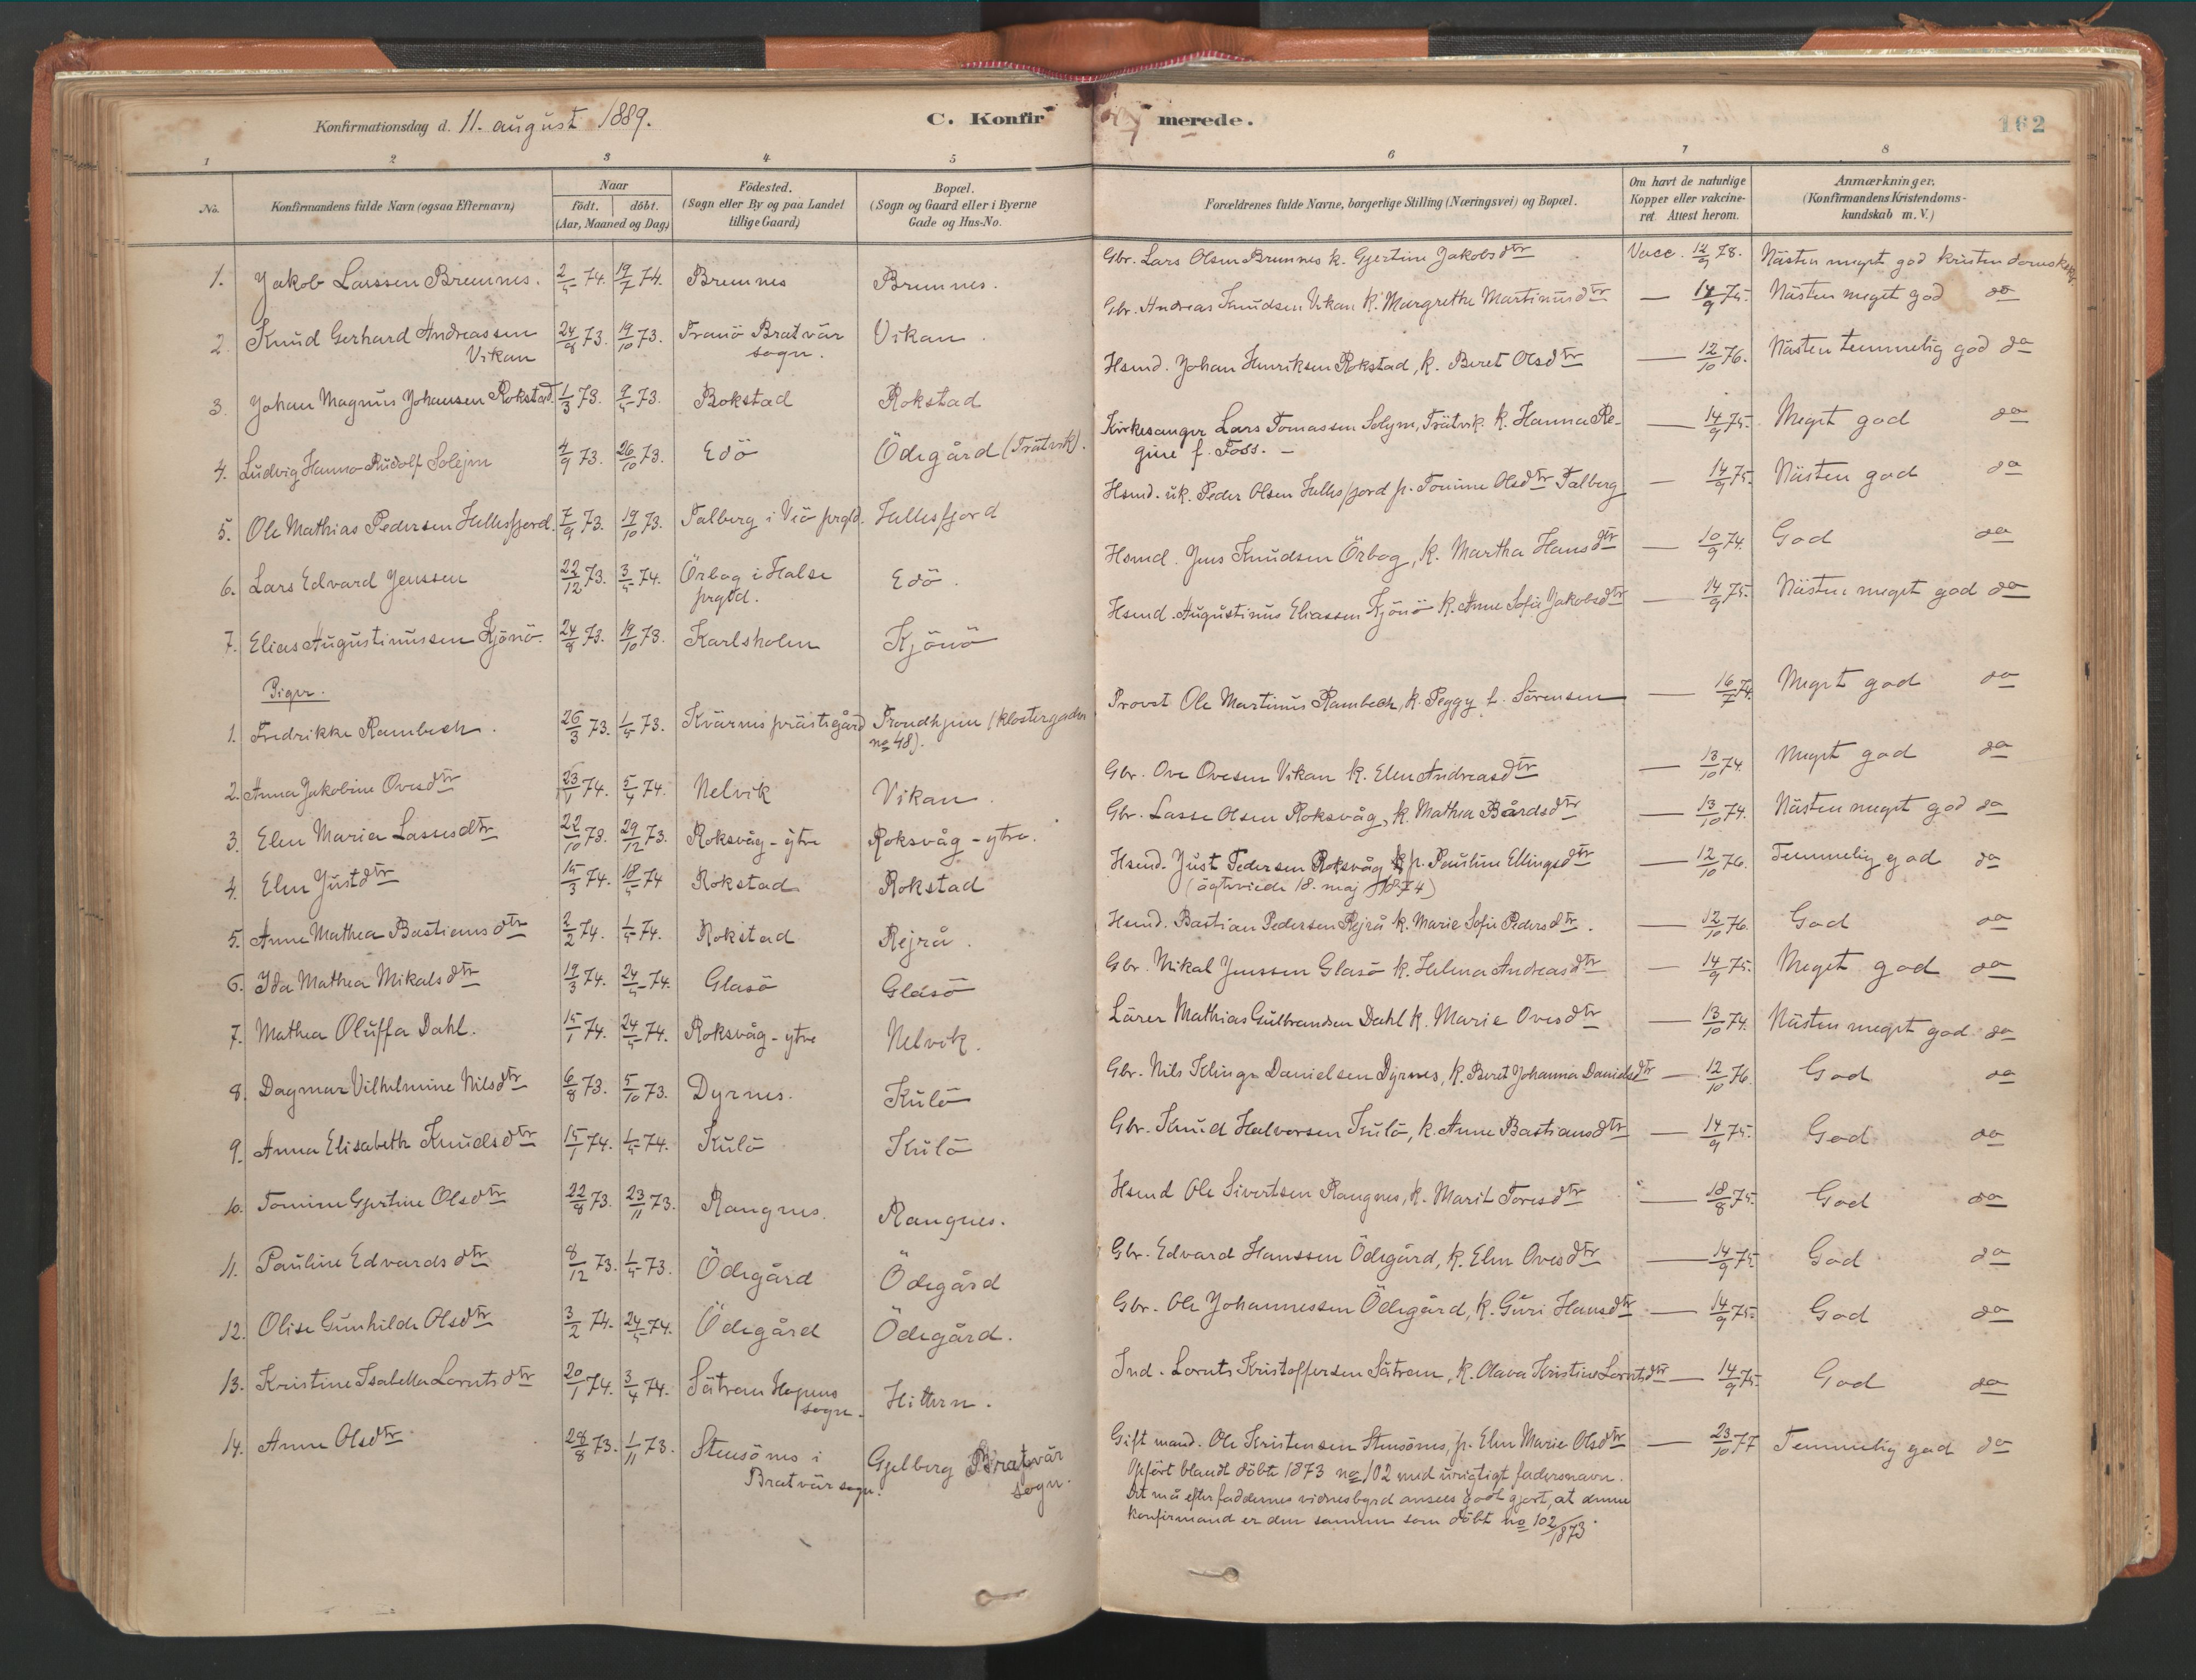 Konfirmationsdag d. 11. august 1889.
C. Konfirmerede.
162
1 2 3 4 5 6 7 8
No.
Konfirmandens fulde Navn (ogsaa Efternavn)
Naar
födt. döbt.
(Aar, Maaned og Dag)
Födested.
(Sogn eller By og paa Landet
tillige Gaard)
Bopæl.
(Sogn og Gaard eller i Byerne
Gade og Hus-No.
Forældrenes fulde Navne, borgerlige Stilling (Næringsvei) og Bopæl.
Om havt de naturlige
Kopper eller vakcine-
ret Attest herom.
Anmærkninger.
(Konfirmandens Kristendoms-
kundskab m. V.)
1. Jakob Larssen Bremnes. 2/5 74. 19/7 74. Bremnes Bremnes. Gbr. Lars Olsen Bremnes k. Gjertine Jakobsdtr Vacc. 12/9 78. Nästen meget god kristendomsksk.
2. Knud Gerhard Andreassen
Vikan 24/8 73. 19/10 73. Tranö Bratvär
sogn. Vikan. Gbr. Andreas Knudsen Vikan k. Margrethe Martinusdtr — 14/9 75. Nästen meget god do
3. Johan Magnus Johansen Rokstad. 1/3 73. 9/5 73. Rokstad Rokstad Hsmd. Johan Henriksen Rokstad, k. Beret Olsdtr — 12/10 76. Nästen temmelig god do
4. Ludvig Hanno Rudolf Solejm 4/9 73. 26/10 73. Edö Ödegård (Trätvik). Kirkesanger Lars Tomassen Solejm, Trätvik. k. Hanna Re-
gine f. Foss. — 14/9 75. Meget god do
5. Ole Mathias Pedersen Hellesfjord. 7/9 73. 19/10 73. Talberg i Veö prgld. Hellesfjord Hsmd. uk. Peder Olsen Hellesfjord p. Tomine Olsdtr Talberg — 14/9 75. Nästen god do
6. Lars Edvard Jenssen 22/12 73. 3/5 74. Örbog i Halse
prgld. Edö. Hsmd. Jens Knudsen Örbog, k. Martha Hansdtr — 10/9 74. God do
7. Elias Augustinussen Kjönö. 24/8 73. 19/10 73. Karlsholm Kjönö Hsmd. Augustinus Eliassen Kjönö k. Anne Sofie Jakobsdtr — 14/9 75. Nästen meget god do
Piger.
1. Fredrikke Rambech. 26/3 73. 1/5 73. Kvärnes prästegård Trondhjem (klostergaden
no 48). Provst Ole Martinus Rambech, k. Peggy f. Sörensen — 16/7 74. Meget god do
2. Anna Jakobine Ovesdtr 23/1 74. 5/4 74. Nelvik Vikan. Gbr. Ove Ovesen Vikan k. Elen Andreasdtr — 13/10 74. Meget god do
3. Elen Maria Lassesdtr 22/10 73. 29/12 73. Roksvåg - ytre Roksvåg - ytre. Gbr. Lasse Olsen Roksvåg, k. Mathea Bårdsdtr — 13/10 74. Nästen meget god do
4. Elen Justdtr 15/3 74. 18/5 74 Rokstad Rokstad Hsmd. Just Pedersen Roksvåg p. Pauline Ellingsdtr
(ägteviede 18. maj 1874) — 12/10 76. Temmelig god do
5. Anne Mathea Bastiansdtr 2/2 74. 1/5 74. Rokstad Rejrå. Hsmd. Bastian Pedersen Rejrå k. Marie Sofie Pedersdtr. — 12/10 76. God do
6. Ida Mathea Mikalsdtr 19/3 74. 24/5 74. Glasö Glasö Gbr. Mikal Jenssen Glasö k. Helena Andreasdtr — 14/9 75. Meget god do
7. Mathea Oluffa Dahl. 15/1 74. 24/5 74. Roksvåg - ytre Nelvik. Lärer Mathias Gulbrandsen Dahl k. Marie Ovesdtr — 13/10 74. Nästen meget god do
8. Dagmar Vilhelmine Nilsdtr 6/8 73. 5/10 73. Dyrnes. Kulö Gbr. Nils Klinge Danielsen Dyrnes, k. Beret Johanna Danielsdtr — 12/10 76. God do
9. Anna Elisabeth Knudsdtr 15/1 74. 1/5 74. Kulö Kulö Gbr. Knud Halvorsen Kulö, k. Anne Bastiansdtr — 14/9 75. God do
10. Tomine Gjertine Olsdtr 22/8 73. 23/11 73. Rangnes. Rangnes. Hsmd Ole Sivertsen Rangnes, k. Marit Toresdtr — 18/8 75. God do
11. Pauline Edvardsdtr 8/12 73. 1/5 73. Ödegård Ödegård Gbr. Edvard Hanssen Ödegård, k. Elen Ovesdtr — 14/9 75 God do
12. Olise Gunhilde Olsdtr 3/2 74. 24/5 74. Ödegård Ödegård. Gbr. Ole Johannessen Ödegård, k. Guri Hansdtr — 14/9 75. God do
13. Kristine Isabella Lorntsdtr 20/1 74. 3/4 74. Sätran Hopens
sogn. Hittern. Ind. Lornts Kristoffersen Sätran, k. Olava Kristine Lorntsdtr — 14/9 75. God do
14. Anne Olsdtr 28/8 73. 1/11 73. Stensönes i
Bratvär sogn. Gjelberg Bratvär
sogn. Gift mand. Ole Kristensen Stensönes, p. Elen Marie Olsdtr — 23/10 77 Temmelig god do
Opfört blandt döbte 1873 no 102 med urigtigt fadersnavn.
Det må efter faddernes vidnesbyrd ansees godtgjort, at denne
konfirmand er den samme som döbt no 102/1873.